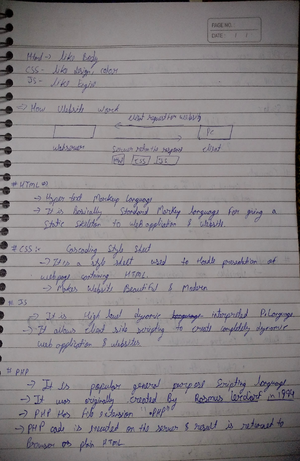 PAGE NO.
DATE: / /
Html → like Body
CSS - like design, color
JS - like logic
→ How Website work
client request on website
Pc
Webserver
Server return response
client
HTML CSS JS
# HTML #
→ Hyper text Markup language
→ It is basically standard Markup language for giving a
static skeleton to web application & website.
# CSS :- Cascading Style Sheet
→ It is a style sheet used to handle presentation of
webpage containing HTML.
→ Makes Website Beautiful & Modern
# JS
→ It is High level dynamic interpreted
→ It allows client side scripting to create completely dynamic
web application & websites.
# PHP
→ It is popular general purpose Scripting language
→ It was originally created By Rasmus in
→ PHP Has File Extension "PHP"
→ PHP code is executed on the server & result is returned to
Browser as plain HTML